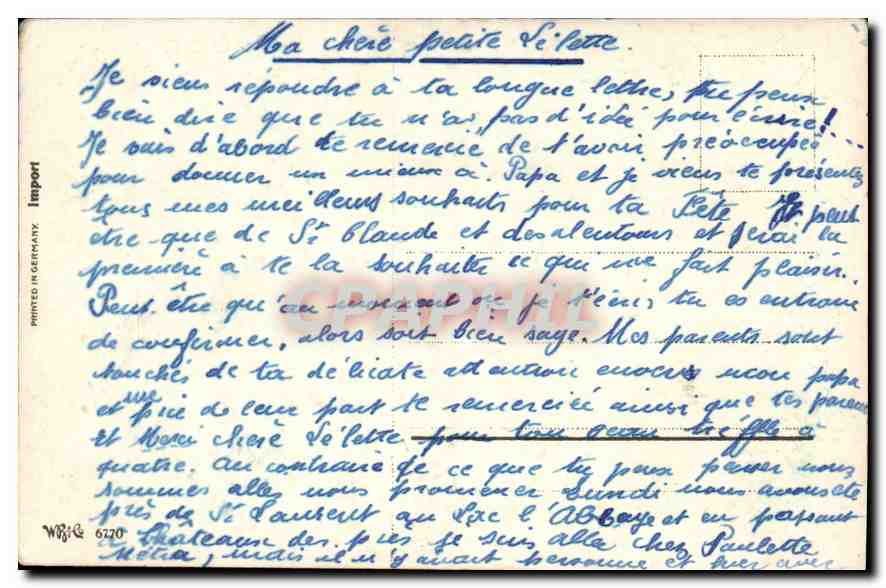 Ma chère petite Lélette.
Je viens répondre à ta longue lettre, tu peux
bien dire que tu n'as pas d'idée pour écrire!
Je vais d'abord te remercié de t'avoir préocupée
pour donner un mieux à Papa et je viens te présentez
tous mes meilleurs souhaits pour ta Fête et peut
être que de St Claude et des alentours et serai la
première à te la souhaiter ce qui me fait plaisir.
Peut être qu'au moment où je t'écris, tu es entraine
de confirmer, alors soit bien sage. Mes parents sont
touchés de ta délicate attention envers mon papa
et me prie de leur part te remercié ainsi que tes parents
et Merci chère Lélette pour ton beau trèffle à
quatre. Au contraire de ce que tu peux penser nous
sommes allés nous promener Lundi nous avons été
près de St Laurent au Lac l'Abbaye et en passant
à Château des prés je suis allé chez Paulette
mais il n'y avait personne et hier
PRINTED IN GERMANY. Import
6770
CPAPHIL